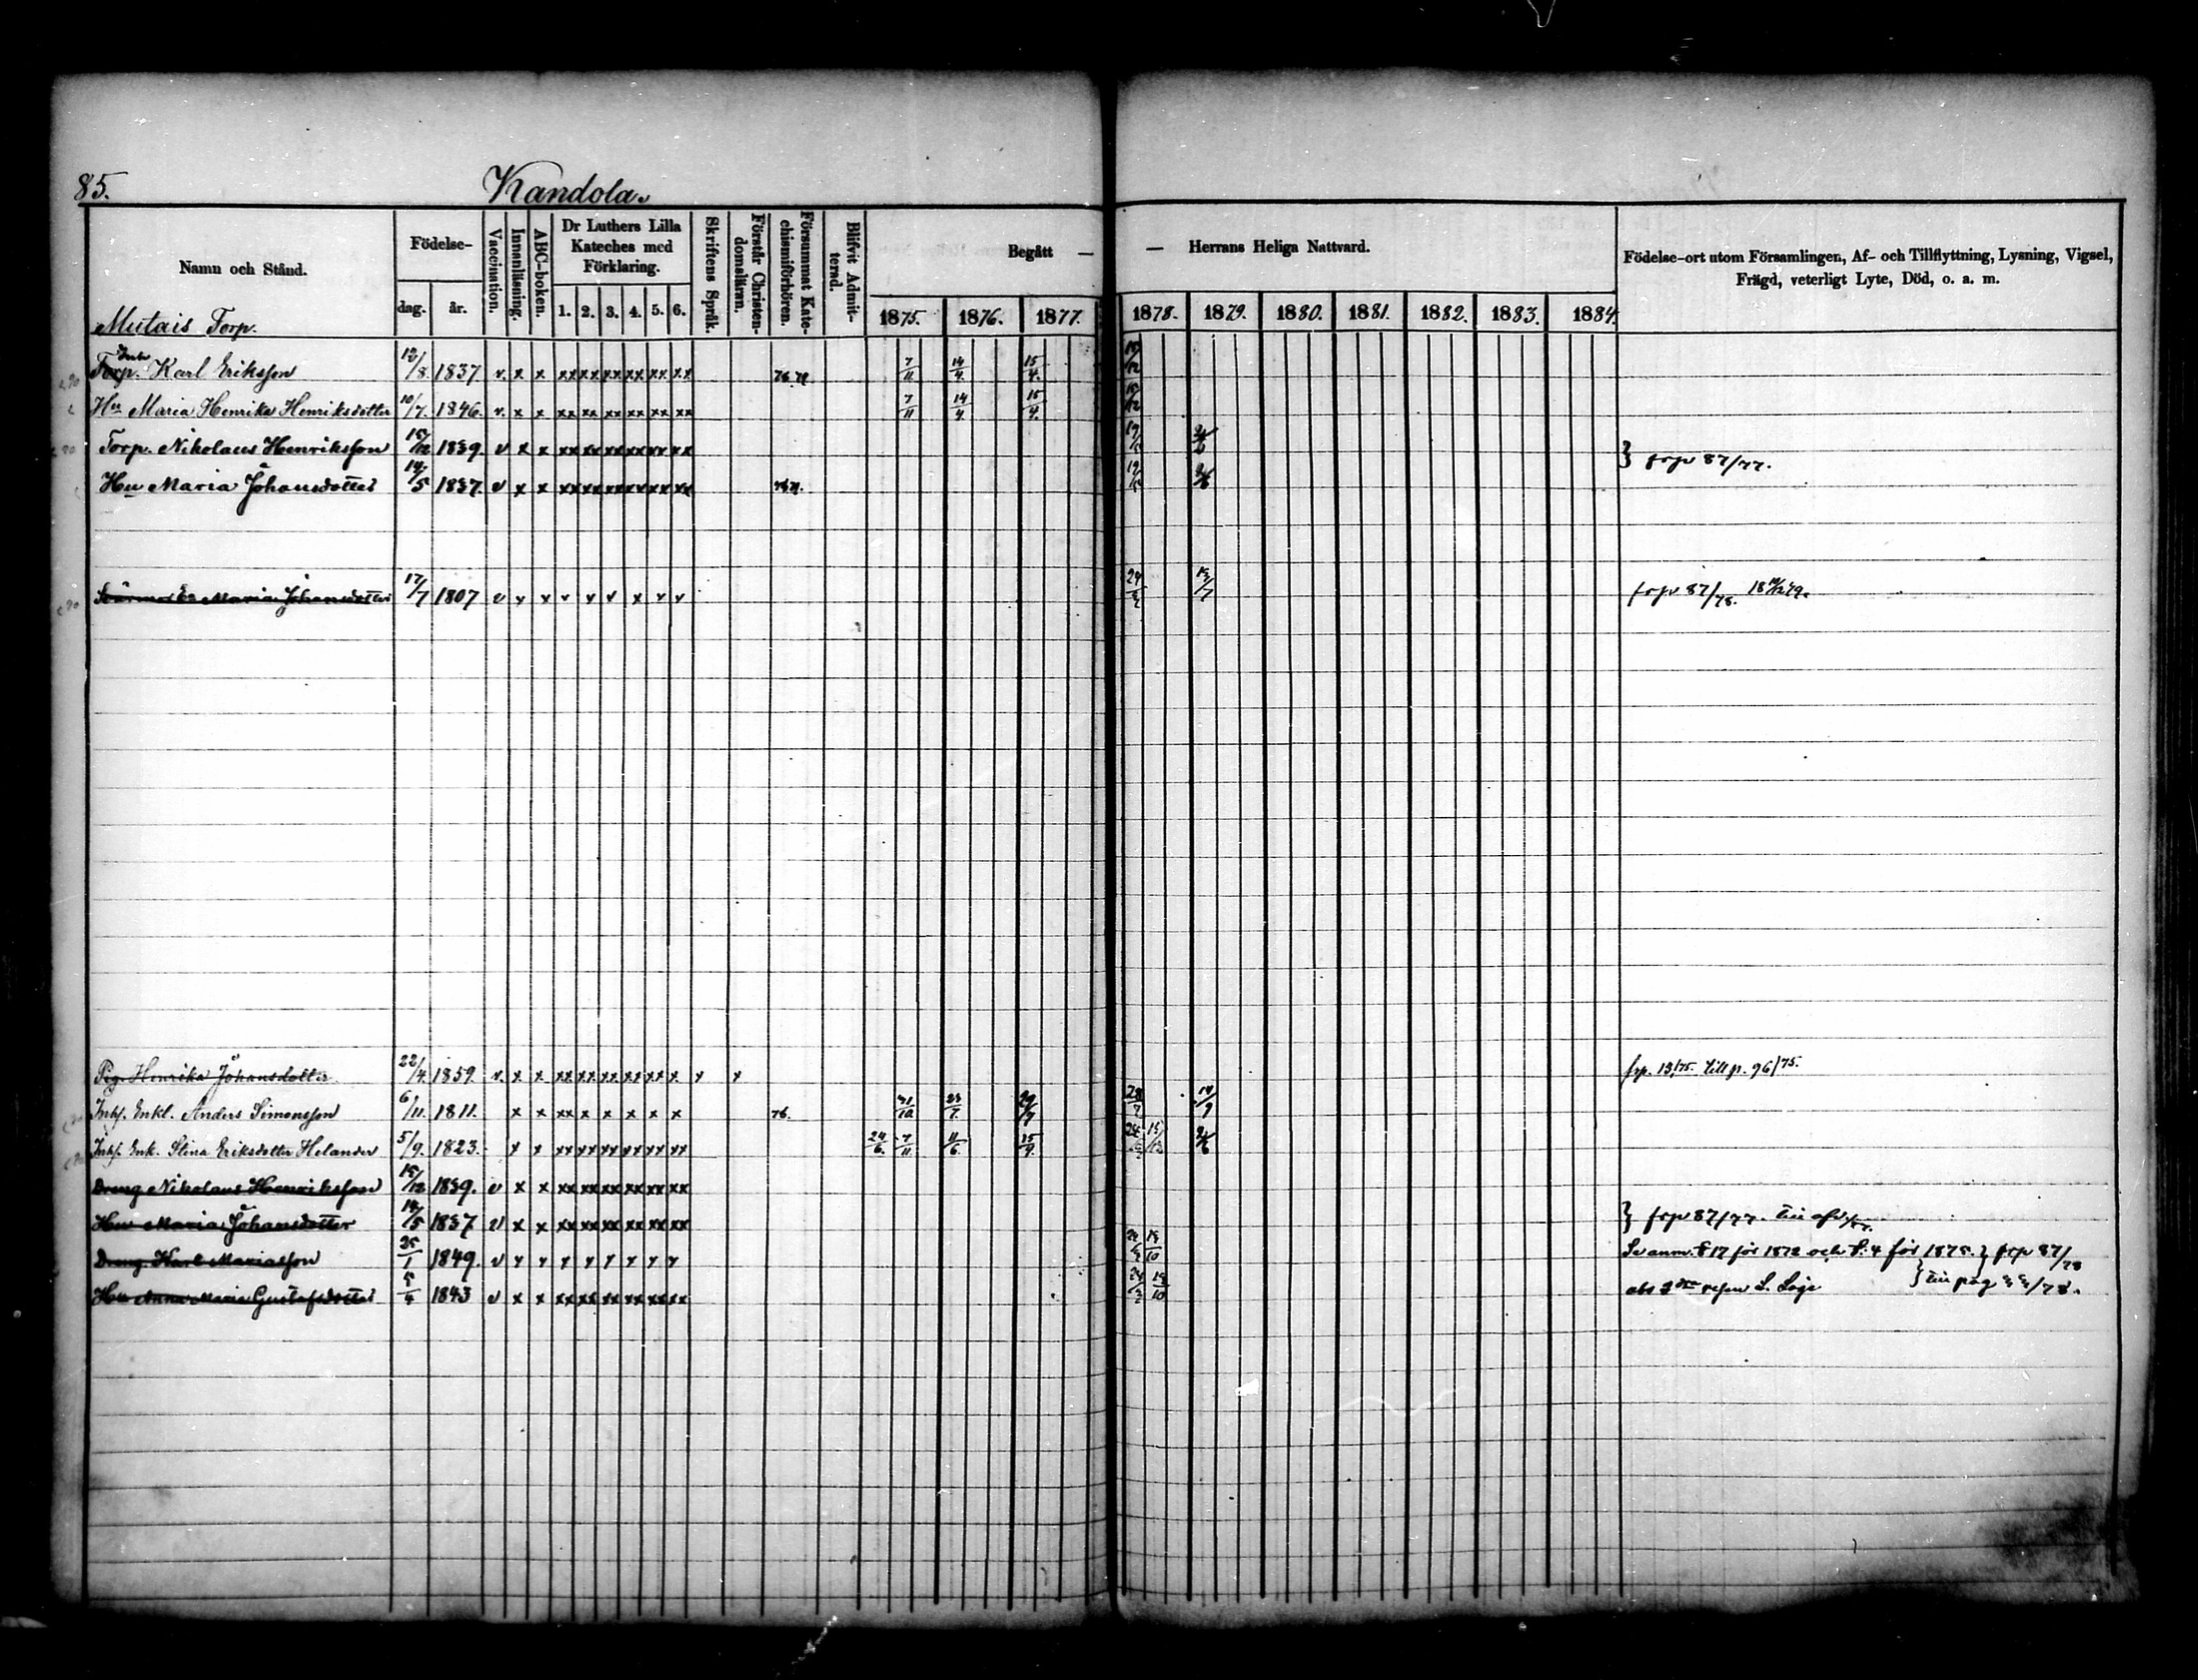 85.
Kandola.
Namn och Stånd.
Födelse-
dag.
år.
Vaccination.
Innanläsning.
ABC-boken.
Dr Luthers Lilla
Kateches med
Förklaring.
1. 2. 3. 4. 5. 6.
Skriftens Språk.
Förstår Christen-
domsläran.
Försummat Kate-
chismiförhören.
Blifvit Admit-
terad.
Begått —
— Herrans Heliga Nattvard.
1875. 1876. 1877. 1878. 1879. 1880. 1881. 1882. 1883. 1884.
Födelse-ort utom Församlingen, Af- och Tillflyttning, Lysning, Vigsel,
Frägd, veterligt Lyte, Död, o. a. m.
Mutais Torp.
Inh
Torp. Karl Eriksson 12/8 1837 v. x x xx xx xx xx xx xx 7/11 14/4 15/4 15/12
Hu Maria Henrika Henriksdotter 10/7. 1846. v. x x xx xx xx xx xx xx 7/11 14/4 15/4 15/12
Torp. Nikolaus Henriksson 15/12 1839. v x x xx xx xx xx xx xx
Hu Maria Johansdotter 14/5 1837. v x x xx xx xx xx xx xx
} frp 87/77.
Maria Johansdotter 17/7 1807 v v x v v v x v v 13/7 frp 87/78.
Pig. Henrika Johansdotter 22/4 1859. v. x x xx xx xx xx xx x v x frp. 13/75. till p. 96/75.
Inhs. Enkl. Anders Simonsson 6/11. 1811. x x xx x x x x x 76. 31/10 23/7 29/7 28/7 14/9
Inhs. Enk. Stina Eriksdotter Helander 5/9. 1823. x x xx xx xx xx xx xx 24/6 7/11 11/6 15/4
Dreng Nikolaus Henriksson 15/12 1839. v x x xx xx xx xx xx xx
Hu Maria Johansdotter 14/5 1837 v x x xx xx xx xx xx xx
} frp 87/77.
Dreng Karl Mariasson 25/1 1849. v y y y y y y y y Se anm. § 17 för 1872 och § 4 för 1875. } frp 87/78
Hu Anna Maria Gustafsdotter 5/4 1843 v x x xx xx xx xx xx xx